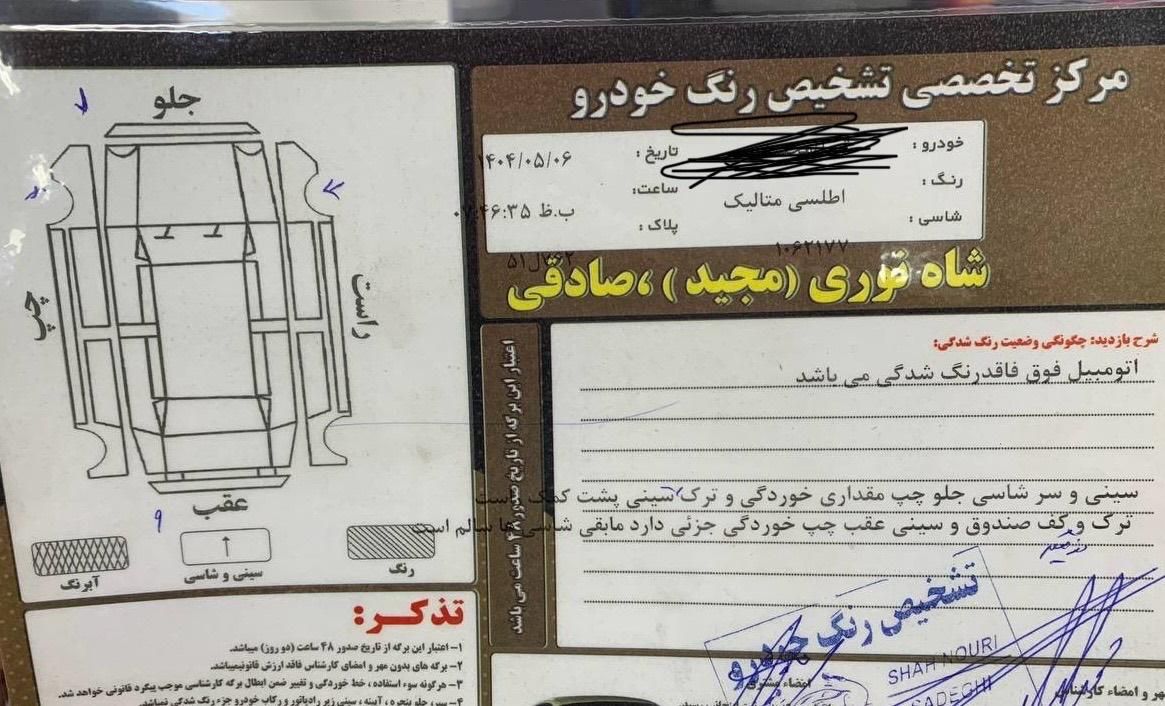 مرکز تخصصی تشخیص رنگ خودرو
خودرو :
تاریخ : ۱۴۰۴/۰۵/۰۶
رنگ : اطلسی متالیک
ساعت: ب.ظ ۰۷:۴۶:۳۵
شاسی : ۱۰۶۲۱۷۷
پلاک :
شاه نوری (مجید) ،صادقی
جلو
چپ
راست
عقب
آبرنگ
سینی و شاسی
رنگ
اعتبار این برگه از تاریخ صدور ۴۸ ساعت می باشد
شرح بازدید: چگونگی وضعیت رنگ شدگی:
اتومبیل فوق فاقدرنگ شدگی می باشد
سینی و سر شاسی جلو چپ مقداری خوردگی و ترک سینی پشت کمک راست
ترک و کف صندوق و سینی عقب چپ خوردگی جزئی دارد مابقی شاسی ها سالم است
تشخیص رنگ خودرو
SHAH NOURI
SADEGHI
امضاء مشتری
مهر و امضاء کارشناس
تذکر:
۱- اعتبار این برگه از تاریخ صدور ۴۸ ساعت (دو روز) میباشد.
۲- برگه های بدون مهر و امضای کارشناس فاقد ارزش قانونیمیباشد.
۳- هرگونه سوء استفاده ، خط خوردگی و تغییر ضمن ابطال برگه کارشناسی موجب پیگرد قانونی خواهد شد.
۴- سپر، جلو پنجره ، آیینه ، سینی زیر رادیاتور و رکاب خودرو جزء رنگ شدگی نمیباشد.